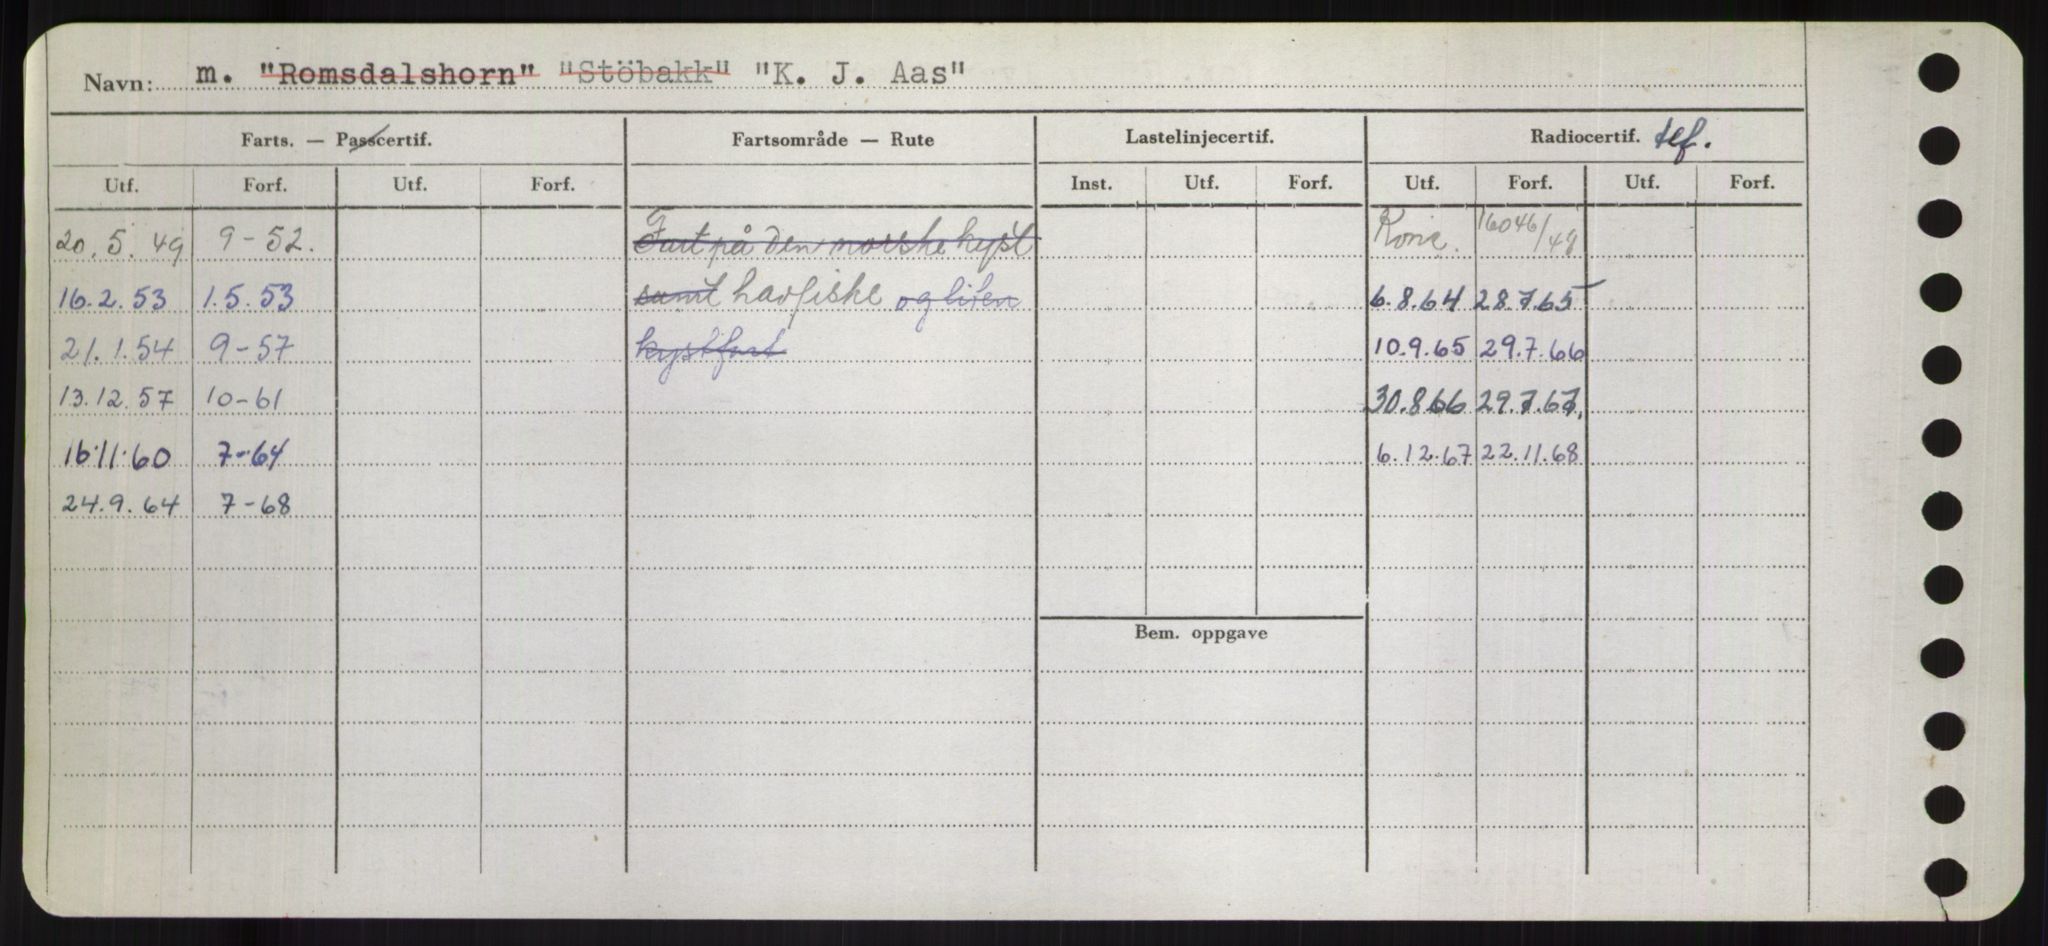 Navn: m. "Romsdalshorn" "Stöbakk" "K. J. Aas"
Farts. — Passcertif. Fartsområde — Rute Lastelinjecertif. Radiocertif. tlf.
Utf. Forf. Utf. Forf. Inst. Utf. Forf. Utf. Forf. Utf. Forf.
20.5.49 9-52. Fart på den norske kyst 16046/48
16.2.53 1.5.53 samt havfiske og liten 6.8.64 28.7.65
21.1.54 9-57 kystfart 10.9.65 29.7.66
13.12.57 10-61 30.8.66 29.7.67.
16.11.60 7-64 6.12.67 22.11.68
24.9.64 7-68
Bem. oppgave